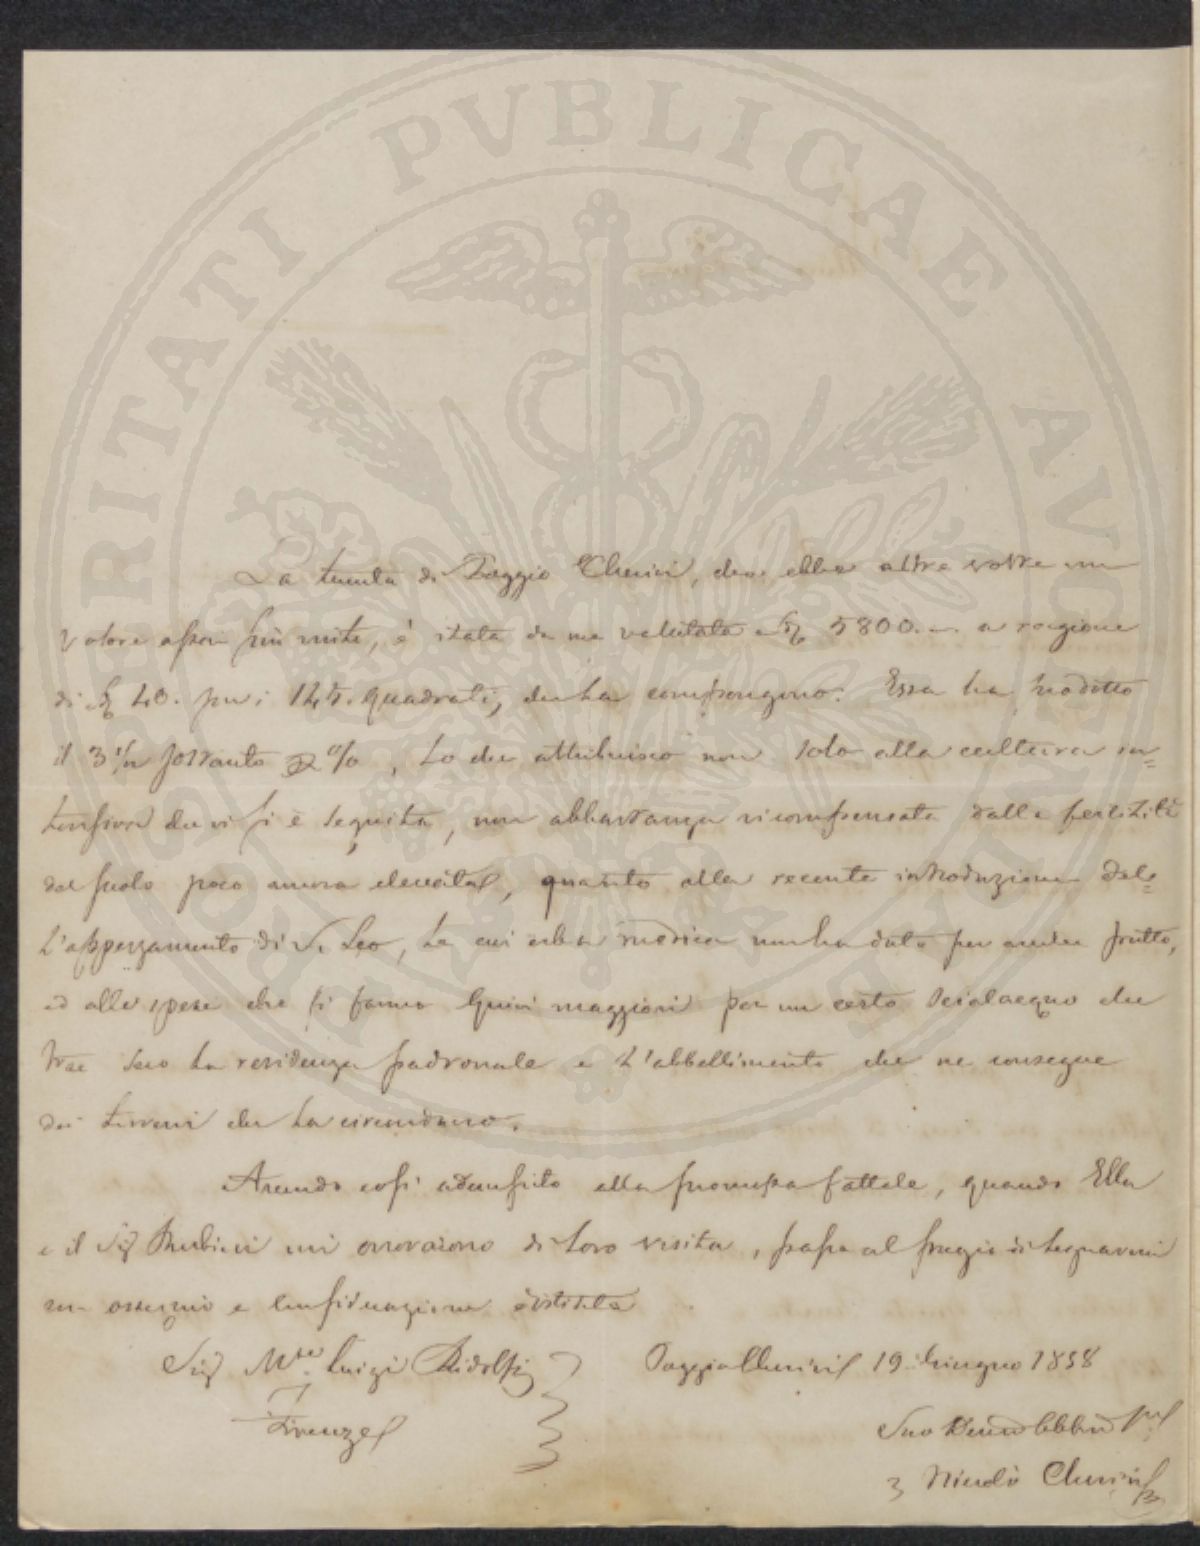 PROSPERITATI PVBLICAE AVGENDAE
La tenuta di Poggio Cherici, che ebbe altre volte un
valore assai più mite, è stata da me valutata 5800. a ragione
di 40. per i 145. quadrati, che la compongono. Essa ha prodotto
il 3 soltanto %, lo che attribuisco non solo alla cultura in=
tensiva che vi si è seguita, non abbastanza ricompensata dalla fertilità
del suolo poco ancora elevata, quanto alla recente introduzione del=
l'appezzamento di S. Leo, la cui erba medica non ha dato per anche frutto,
ed alle spese che si fanno quivi maggiori per un certo scialacquo che
trae seco la residenza padronale e l'abbellimento che ne consegue
dei terreni che la circondano.
Avendo così adempito alla promessa fattale, quando Ella
e il Sig Rubieri mi onorarono di loro visita, passo al pregio di segnarmi
con ossequio e considerazione distinta
Sig Mse Luigi Ridolfi
Poggio Cherici 19 Giugno 1858
Firenze
Suo
Niccolò Cherici